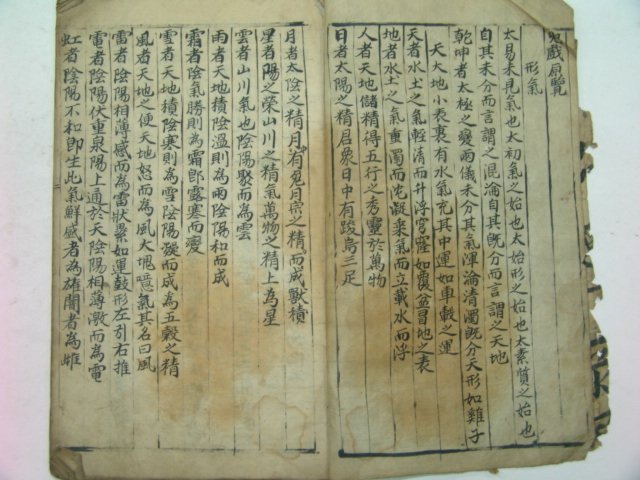 戱肩覽
形氣
太易未見氣也太初氣之始也太始形之始也太素質之始也
自其未分而言謂之混淪自其旣分而言謂之天地
乾坤者太極之變兩儀未分其氣渾淪淸濁旣分天形如雞子
天大地小表裏有水氣充其中運如車轂之運
天者水土之氣輕淸而升浮穹窿如覆盆冒地之表
地者水土之氣重濁而沈凝乘氣而立載水而浮
人者天地儲精得五行之秀靈於萬物
日者太陽之精君象日中有踆烏三足
月者太陰之精月有兎月宗之精而成獸積
星者陽之榮山川之精氣萬物之精上爲星
雲者山川氣也陰陽聚而為雲
雨者天地積陰溫則為雨陰陽和而成
霜者陰氣勝則為霜卽露寒而變
雪者天地積陰寒則為雪陰陽凝而成為五穀之精
風者天地之便天地怒而為風大塊噫氣其名曰風
雷者陰陽相薄感而為雷狀纍如運鼓形左引右推
電者陰陽伏重泉陽上通於天陰陽相薄激而為電
虹者陰陽不和卽生此氣鮮盛者為雄闇者為雌